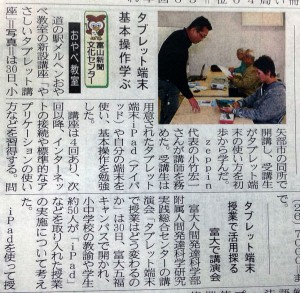 タブレット端末
基本操作学ぶ
富山新聞
文化センター
おやべ教室
道の駅メルヘンおや
べ教室の新設講座「や
さしいタブレット講
座」=写真=は30日、小
矢部市の同所で
開講し、受講生
がタブレット端
末の使い方を初
歩から学んだ。
代表の小竹志一
さんが講師を務
めた。受講生は
用意されたタブレット
端末iPad(アイパ
ッド)や自分の端末を
使い、基本操作を勉強
した。
講座は4回あり、次
回以降、インターネッ
トの接続や標準的なア
プリケーションの使い
方などを習得する。問
タブレット端末
授業で活用探る
富大で講演会
富大人間発達科学部
附属人間発達科学研究
実践総合センターの講
演会「タブレット端末
で授業はどう変わるの
か」は30日、富大五福
キャンパスで開かれ、
小中学校の教諭や学生
約50人が「iPad」
などを取り入れた授業
の実施について考え
た。
iPadを使って授